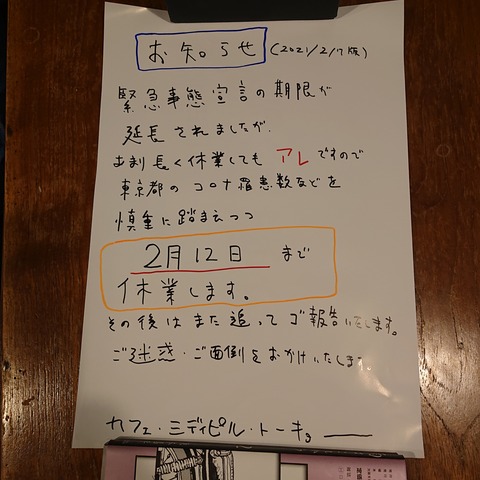 お知らせ (2021/2/7版)
緊急事態宣言の期限が
延長されましたが、
あまり長く休業しても アレ ですので
東京都の コロナ罹患数などを
慎重に踏まえつつ
2月12日 まで
休業します。
その後はまた追ってご報告いたします。
ご迷惑・ご面倒をおかけいたします
カフェ・ミディピル・トーキョー